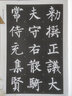 勅撰正議大
夫守右散騎
常侍充集賢